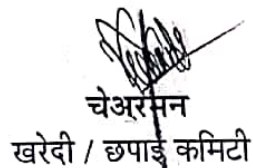 चेअरमन
खरेदी / छपाई कमिटी